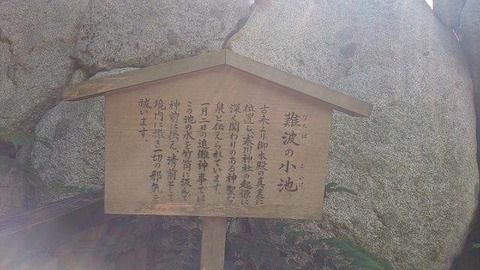 難波の小池
なんば こいけ
古来より御本殿の真裏に
位置し、寒川神社の起源に
深く関わりのある神聖な
泉と伝えられています。
一月二日の追儺神事では
この池の水を竹筒に汲んで
神前に供え、清前をして
境内に撒き一切の邪気を
祓います。